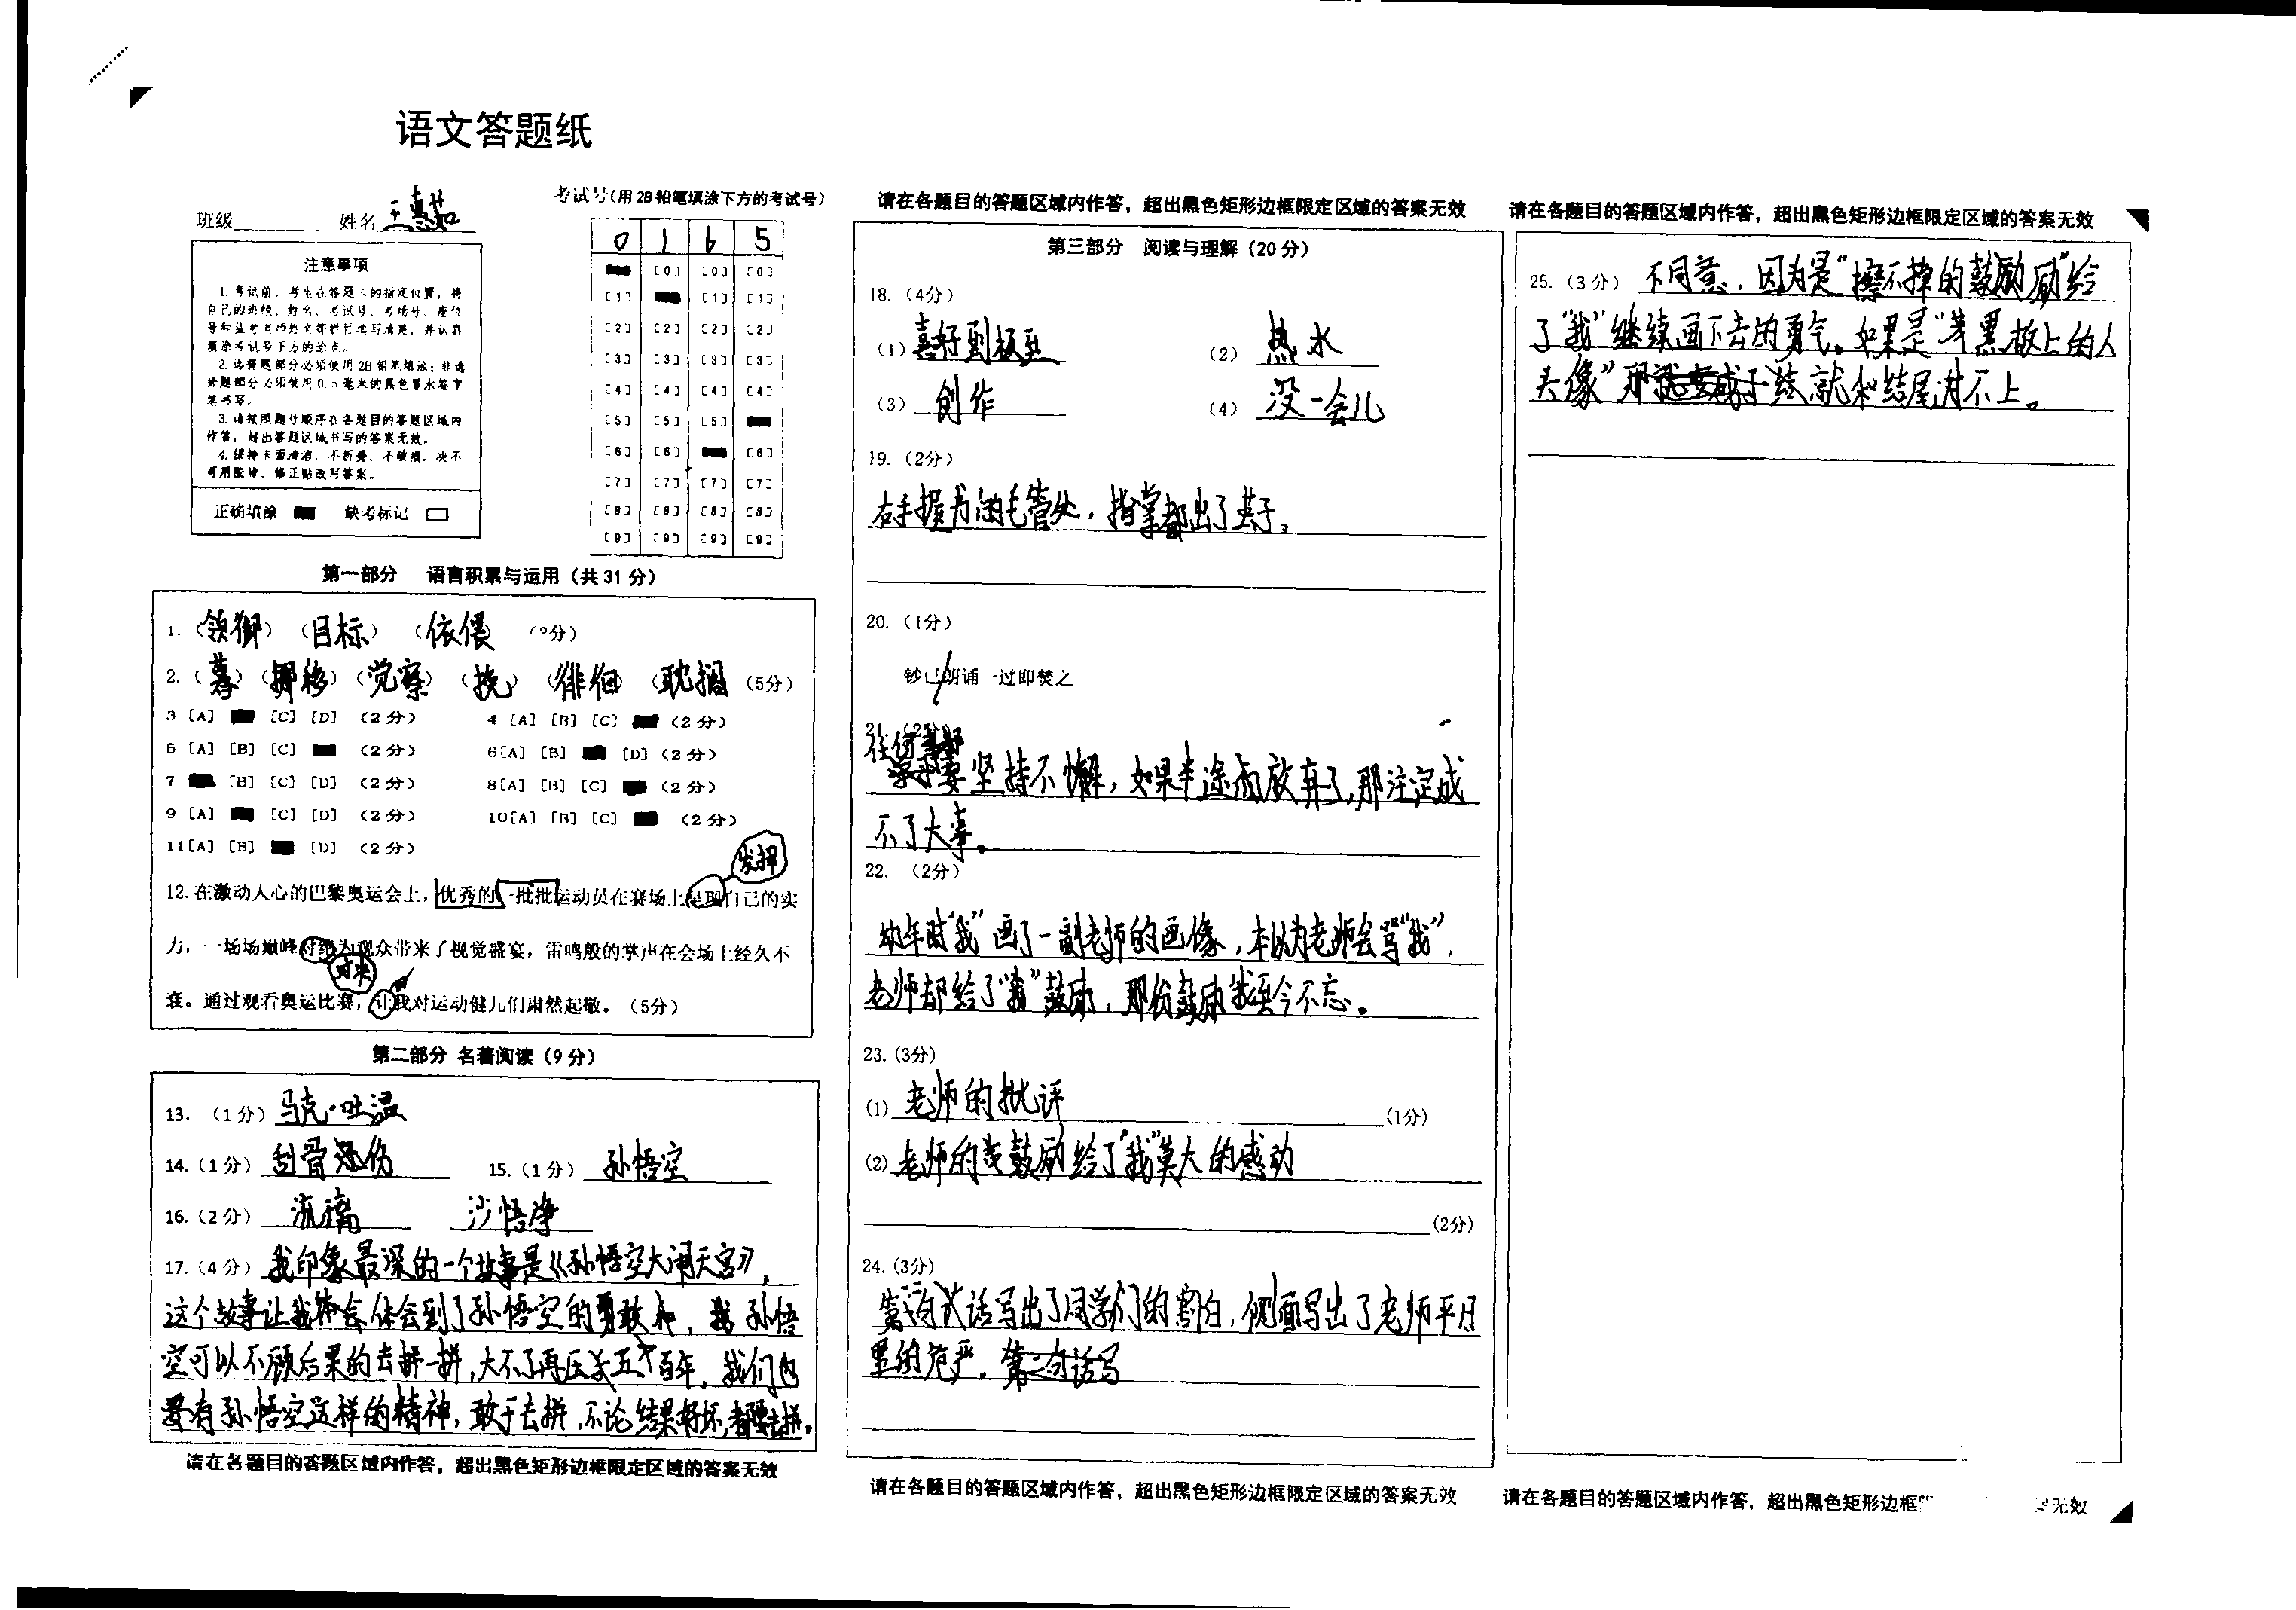 语文答题纸
班级 姓名
考试号(用2B铅笔填涂下方的考试号)
0 1 6 5
[0] [0] [0]
[1] [1] [1]
[2] [2] [2] [2]
[3] [3] [3] [3]
[4] [4] [4] [4]
[5] [5] [5]
[6] [6] [6]
[7] [7] [7] [7]
[8] [8] [8] [8]
[9] [9] [9] [9]
注意事项
1.考试前，考生在答题卡的指定位置，将
自己的班级、姓名、考试号、考场号、座位
填涂考试号下方的涂点。
2.选择题部分必须使用2B铅笔填涂；非选
择题部分必须使用0.5毫米的黑色墨水签字
笔书写。
3.请按照题号顺序在各题目的答题区域内
作答，超出答题区域书写的答案无效。
4.保持卡面清洁，不折叠、不破损。决不
可用胶带、修正贴改写答案。
正确填涂 缺考标记
第一部分 语言积累与运用（共31分）
1.（领御）（目标）（依偎）
2.（募）（挪移）（觉察）（挽）（徘徊）（耽搁）（5分）
3 [A] [C] [D] （2分） 4 [A] [B] [C] （2分）
5 [A] [B] [C] （2分） 6[A] [B] [D]（2分）
7 [B] [C] [D] （2分） 8[A] [B] [C] （2分）
9 [A] [C] [D] （2分） 10[A] [B] [C] （2分）
11[A] [B] [D] （2分）
发挥
12.在激动人心的巴黎奥运会上，优秀的一批批运动员在赛场上呈现自己的实
力，一场场巅峰对绝为观众带来了视觉盛宴，雷鸣般的掌声在会场上经久不
对决
衰。通过观看奥运比赛，让我对运动健儿们肃然起敬。（5分）
第二部分 名著阅读（9分）
13.（1分）马克·吐温
14.（1分）刮骨疗伤 15.（1分）孙悟空
16.（2分） 流 沙悟净
17.（4分）我印象最深的一个故事是《孙悟空大闹天宫》，
这个故事让我体会到了孙悟空的勇敢 孙悟
空可以不顾后果的去拼一拼，大不了再压五百年，我们也
要有孙悟空这样的精神，敢于去拼，不论结果好坏，都要去拼。
请在各题目的答题区域内作答，超出黑色矩形边框限定区域的答案无效
请在各题目的答题区域内作答，超出黑色矩形边框限定区域的答案无效
第三部分 阅读与理解（20分）
18.（4分）
(1)喜好到极至 (2) 热水
(3) 创作 (4) 没一会儿
19.（2分）
右手握书的毛管处，指掌都出了茧子。
20.（1分）
钞已/朗诵一过即焚之
21.（2分）
任何事都
要坚持不懈，如果半途而放弃了，那注定成
不了大事。
22.（2分）
幼年时“我”画了一副老师的画像，本以为老师会骂“我”，
老师却给了“我”鼓励，那份鼓励我至今不忘。
23.(3分)
(1) 老师的批评 (1分)
(2) 老师的鼓励给了“我”莫大的感动
(2分)
24.(3分)
第一句式话写出了同学们的害怕，侧面写出了老师平日
里的危严。第二句话写
请在各题目的答题区域内作答，超出黑色矩形边框限定区域的答案无效
请在各题目的答题区域内作答，超出黑色矩形边框限定区域的答案无效
25.（3分）不同意，因为是“擦不掉的鼓励”给
了“我”继续画下去的勇气。如果是“黑板上的人
头像”那就和结尾对不上。
请在各题目的答题区域内作答，超出黑色矩形边框 无效